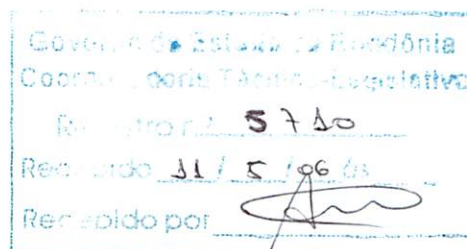 Governo do Estado de Rondônia
Coordenadoria Técnico-Legislativa
Registro n.º 5710
Recebido 11 / 5 / 06 às
Recebido por